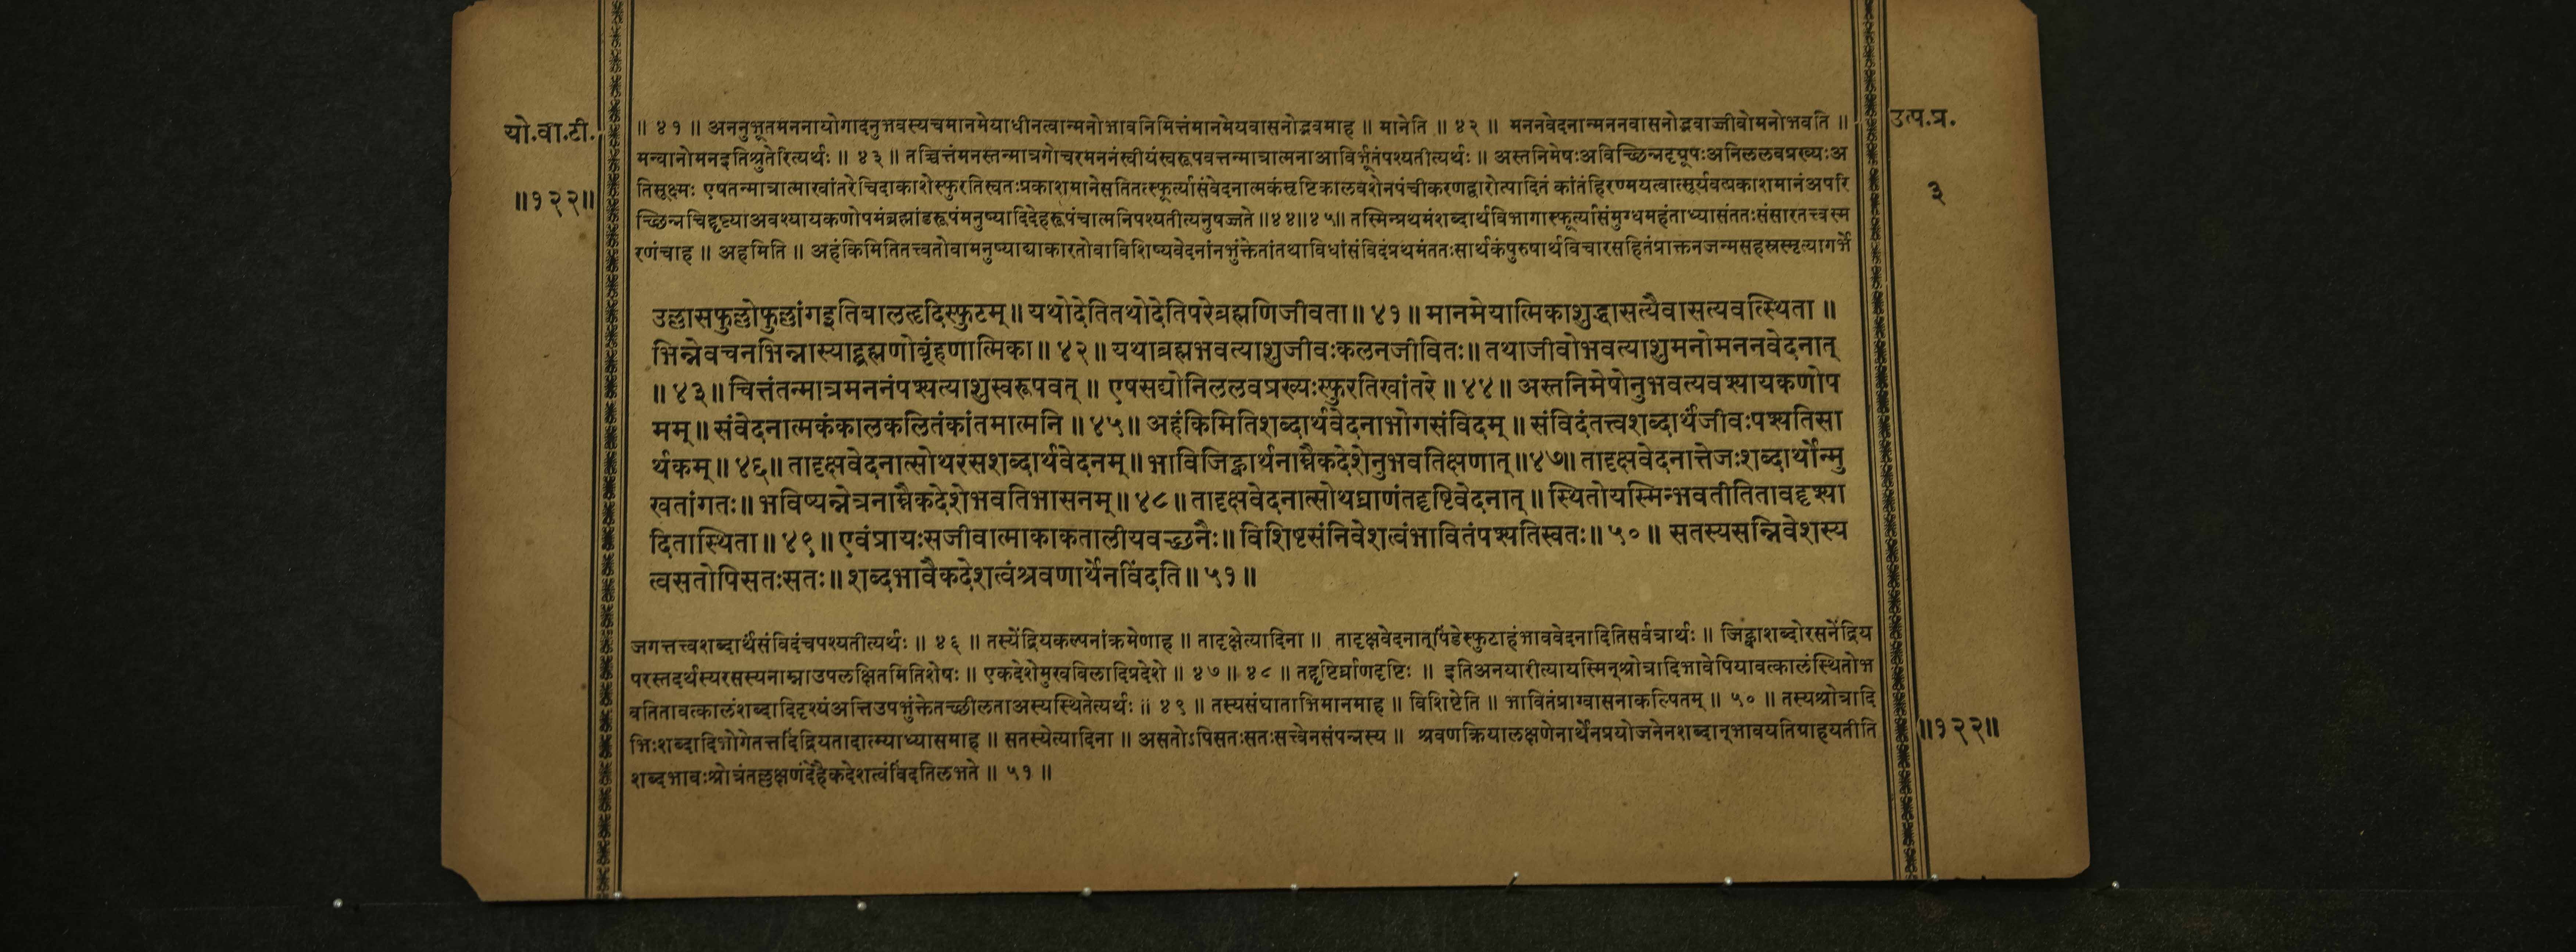 यो.वा.टी.
॥१२२॥
उत्प.प्र.
३
॥ ४१ ॥ अननुभूतमननायोगादनुभवस्यचमानमेयाधीनत्वान्मनोभावनिमित्तंमानमेयवासनोद्भवमाह ॥ मानेति ॥ ४२ ॥ मननवेदनान्मननवासनोद्भवाज्जीवोमनोभवति ॥
मन्वानोमनइतिश्रुतेरित्यर्थः ॥ ४३ ॥ तच्चित्तंमनस्तन्मात्रगोचरमननंस्वीयंस्वरूपवत्तन्मात्रात्मनाआविर्भूतंपश्यतीत्यर्थः ॥ अस्तनिमेषःअविच्छिन्नदृग्रूपःअनिललवप्रख्यःअ
तिसूक्ष्मः एषतन्मात्रात्माखांतरेचिदाकाशेस्फुरतिस्वतःप्रकाशमानेसतितत्स्फूर्त्यासंवेदनात्मकंसृष्टिकालवशेनपंचीकरणद्वारोत्पादितं कांतंहिरण्मयत्वात्सूर्यवत्प्रकाशमानंअपरि
च्छिन्नचिद्दृष्ट्याअवश्यायकणोपमंब्रह्मांडरूपंमनुष्यादिदेहरूपंचात्मनिपश्यतीत्यनुषज्जते ॥४४॥४५॥ तस्मिन्प्रथमंशब्दार्थविभागास्फूर्त्यासंमुग्धमहंताध्यासंततःसंसारतत्त्वस्म
रणंचाह ॥ अहमिति ॥ अहंकिमितितत्त्वतोवामनुष्याद्याकारतोवाविशिष्यवेदनांनभुंक्तेतांतथाविधांसंविदंप्रथमंततःसार्थकंपुरुषार्थविचारसहितंप्राक्तनजन्मसहस्रस्मृत्यागर्भे
उल्लासफुल्लोफुल्लांगइतिबालहृदिस्फुटम्॥ यथोदेतितथोदेतिपरेब्रह्मणिजीवता॥ ४१ ॥ मानमेयात्मिकाशुद्धासत्यैवासत्यवत्स्थिता ॥
भिन्नेवचनभिन्नास्याद्ब्रह्मणोबृंहणात्मिका॥ ४२॥ यथाब्रह्मभवत्याशुजीवःकलनजीवितः॥ तथाजीवोभवत्याशुमनोमननवेदनात्
॥ ४३॥ चित्तंतन्मात्रमननंपश्यत्याशुस्वरूपवत् ॥ एषसद्योनिललवप्रख्यःस्फुरतिखांतरे ॥ ४४॥ अस्तनिमेषोनुभवत्यवश्यायकणोप
मम्॥ संवेदनात्मकंकालकलितंकांतमात्मनि ॥ ४५॥ अहंकिमितिशब्दार्थवेदनाभोगसंविदम् ॥ संविदंतत्त्वशब्दार्थंजीवःपश्यतिसा
र्थकम्॥ ४६॥ तादृक्षवेदनात्सोथरसशब्दार्थवेदनम्॥ भाविजिह्वार्थनाम्नैकदेशेनुभवतिक्षणात्॥४७॥ तादृक्षवेदनात्तेजःशब्दार्थोन्मु
खतांगतः॥ भविष्यन्नेत्रनाम्नैकदेशेभवतिभासनम्॥ ४८ ॥ तादृक्षवेदनात्सोथघ्राणंतदृष्टिवेदनात् ॥ स्थितोयस्मिन्भवतीतितावदृश्या
दितास्थिता॥ ४९॥ एवंप्रायःसजीवात्माकाकतालीयवच्छनैः॥ विशिष्टसंनिवेशत्वंभावितंपश्यतिस्वतः॥ ५०॥ सतस्यसन्निवेशस्य
त्वसतोपिसतःसतः॥ शब्दभावैकदेशत्वंश्रवणार्थेनविंदति॥ ५१॥
जगत्तत्त्वशब्दार्थसंविदंचपश्यतीत्यर्थः ॥ ४६ ॥ तस्येंद्रियकल्पनांक्रमेणाह ॥ तादृक्षेत्यादिना ॥ तादृक्षवेदनात्पिंडेस्फुटाहंभाववेदनादितिसर्वत्रार्थः ॥ जिह्वाशब्दोरसनेंद्रिय
परस्तदर्थस्यरसस्यनाम्नाउपलक्षितमितिशेषः ॥ एकदेशेमुखबिलादिप्रदेशे ॥ ४७ ॥ ४८ ॥ तद्दृष्टिर्घ्राणदृष्टिः ॥ इतिअनयारीत्यायस्मिन्श्रोत्रादिभावेपियावत्कालंस्थितोभ
वतितावत्कालंशब्दादिदृश्यंअत्तिउपभुंक्तेतच्छीलताअस्यस्थितेत्यर्थः ॥ ४९ ॥ तस्यसंघाताभिमानमाह ॥ विशिष्टेति ॥ भावितंप्राग्वासनाकल्पितम् ॥ ५० ॥ तस्यश्रोत्रादि
भिःशब्दादिभोगेतत्तदिंद्रियतादात्म्याध्यासमाह ॥ सतस्येत्यादिना ॥ असतोऽपिसतःसतःसत्त्वेनसंपन्नस्य ॥ श्रवणक्रियालक्षणेनार्थेनप्रयोजनेनशब्दान्भावयतिग्राहयतीति
शब्दभावःश्रोत्रंतल्लक्षणंदेहैकदेशत्वंविंदतिलभते ॥ ५१ ॥
॥१२२॥